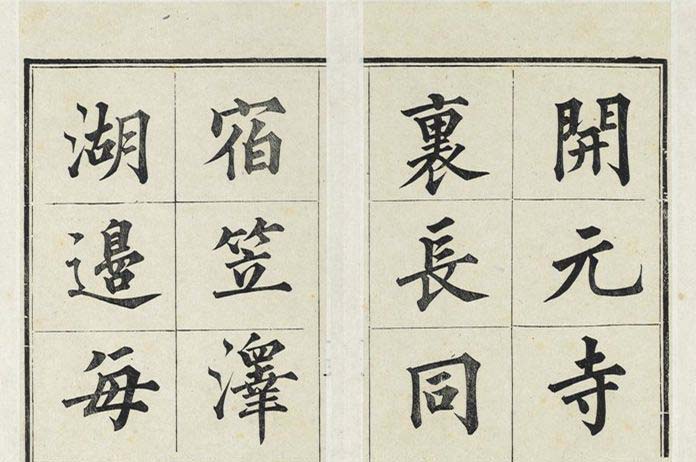 開元寺
裏長同
宿笠澤
湖邊每